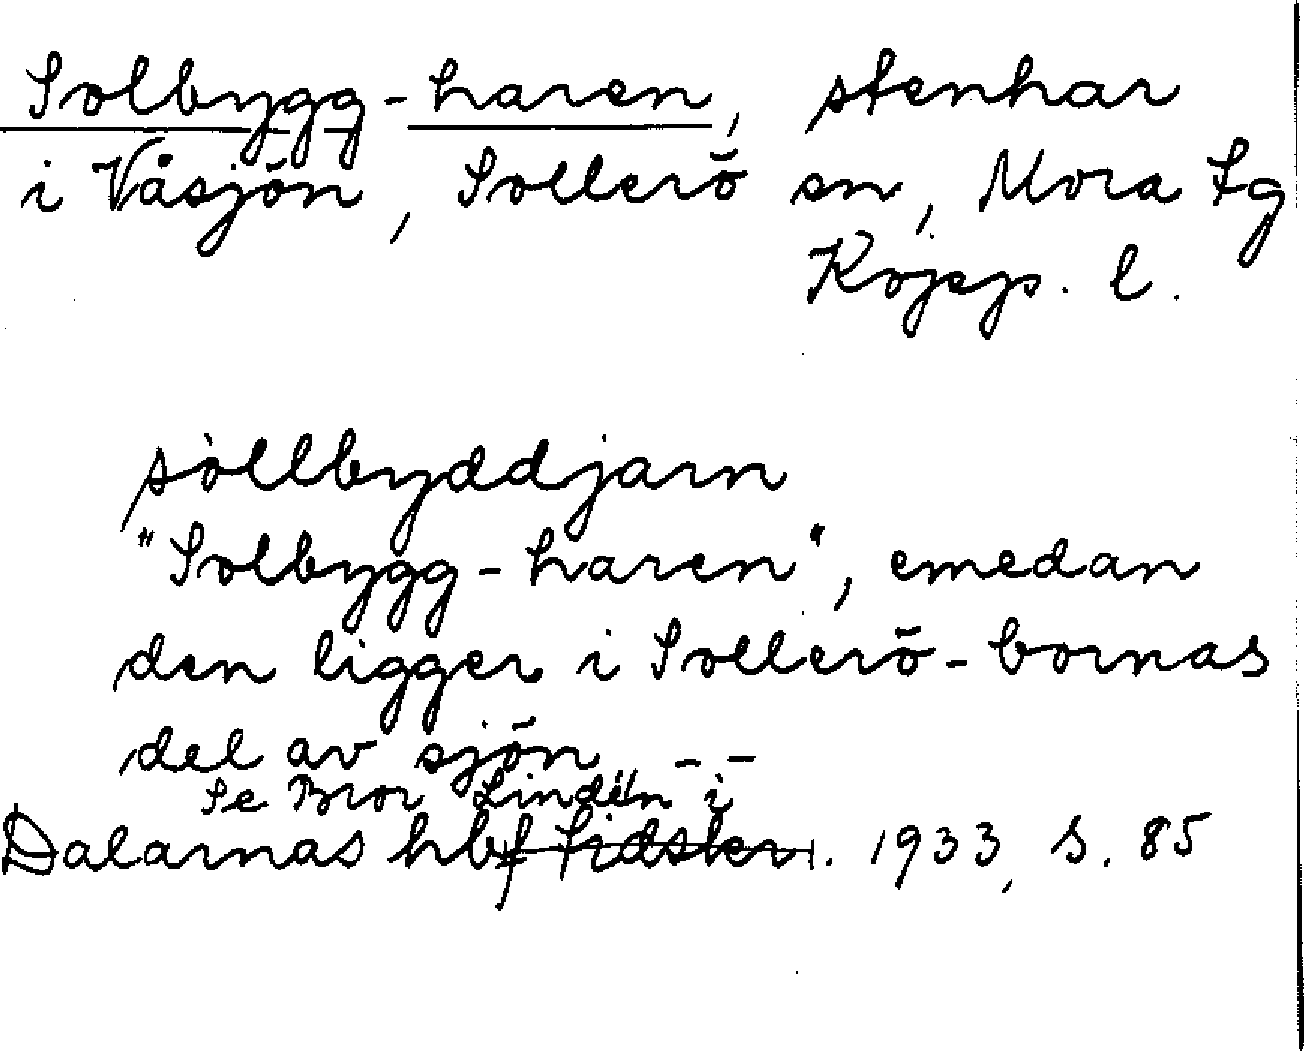 Solbygg-haren, stenhar
i Våsjön, Sollerö sn, Mora tg
Kopp. l.
sòllbyddjarn
"Solbygg-haren", emedan
den ligger i Sollerö-bornas
del av sjön - -
Se Bror Lindén i
Dalarnas hbf tidskr. 1933, s. 85